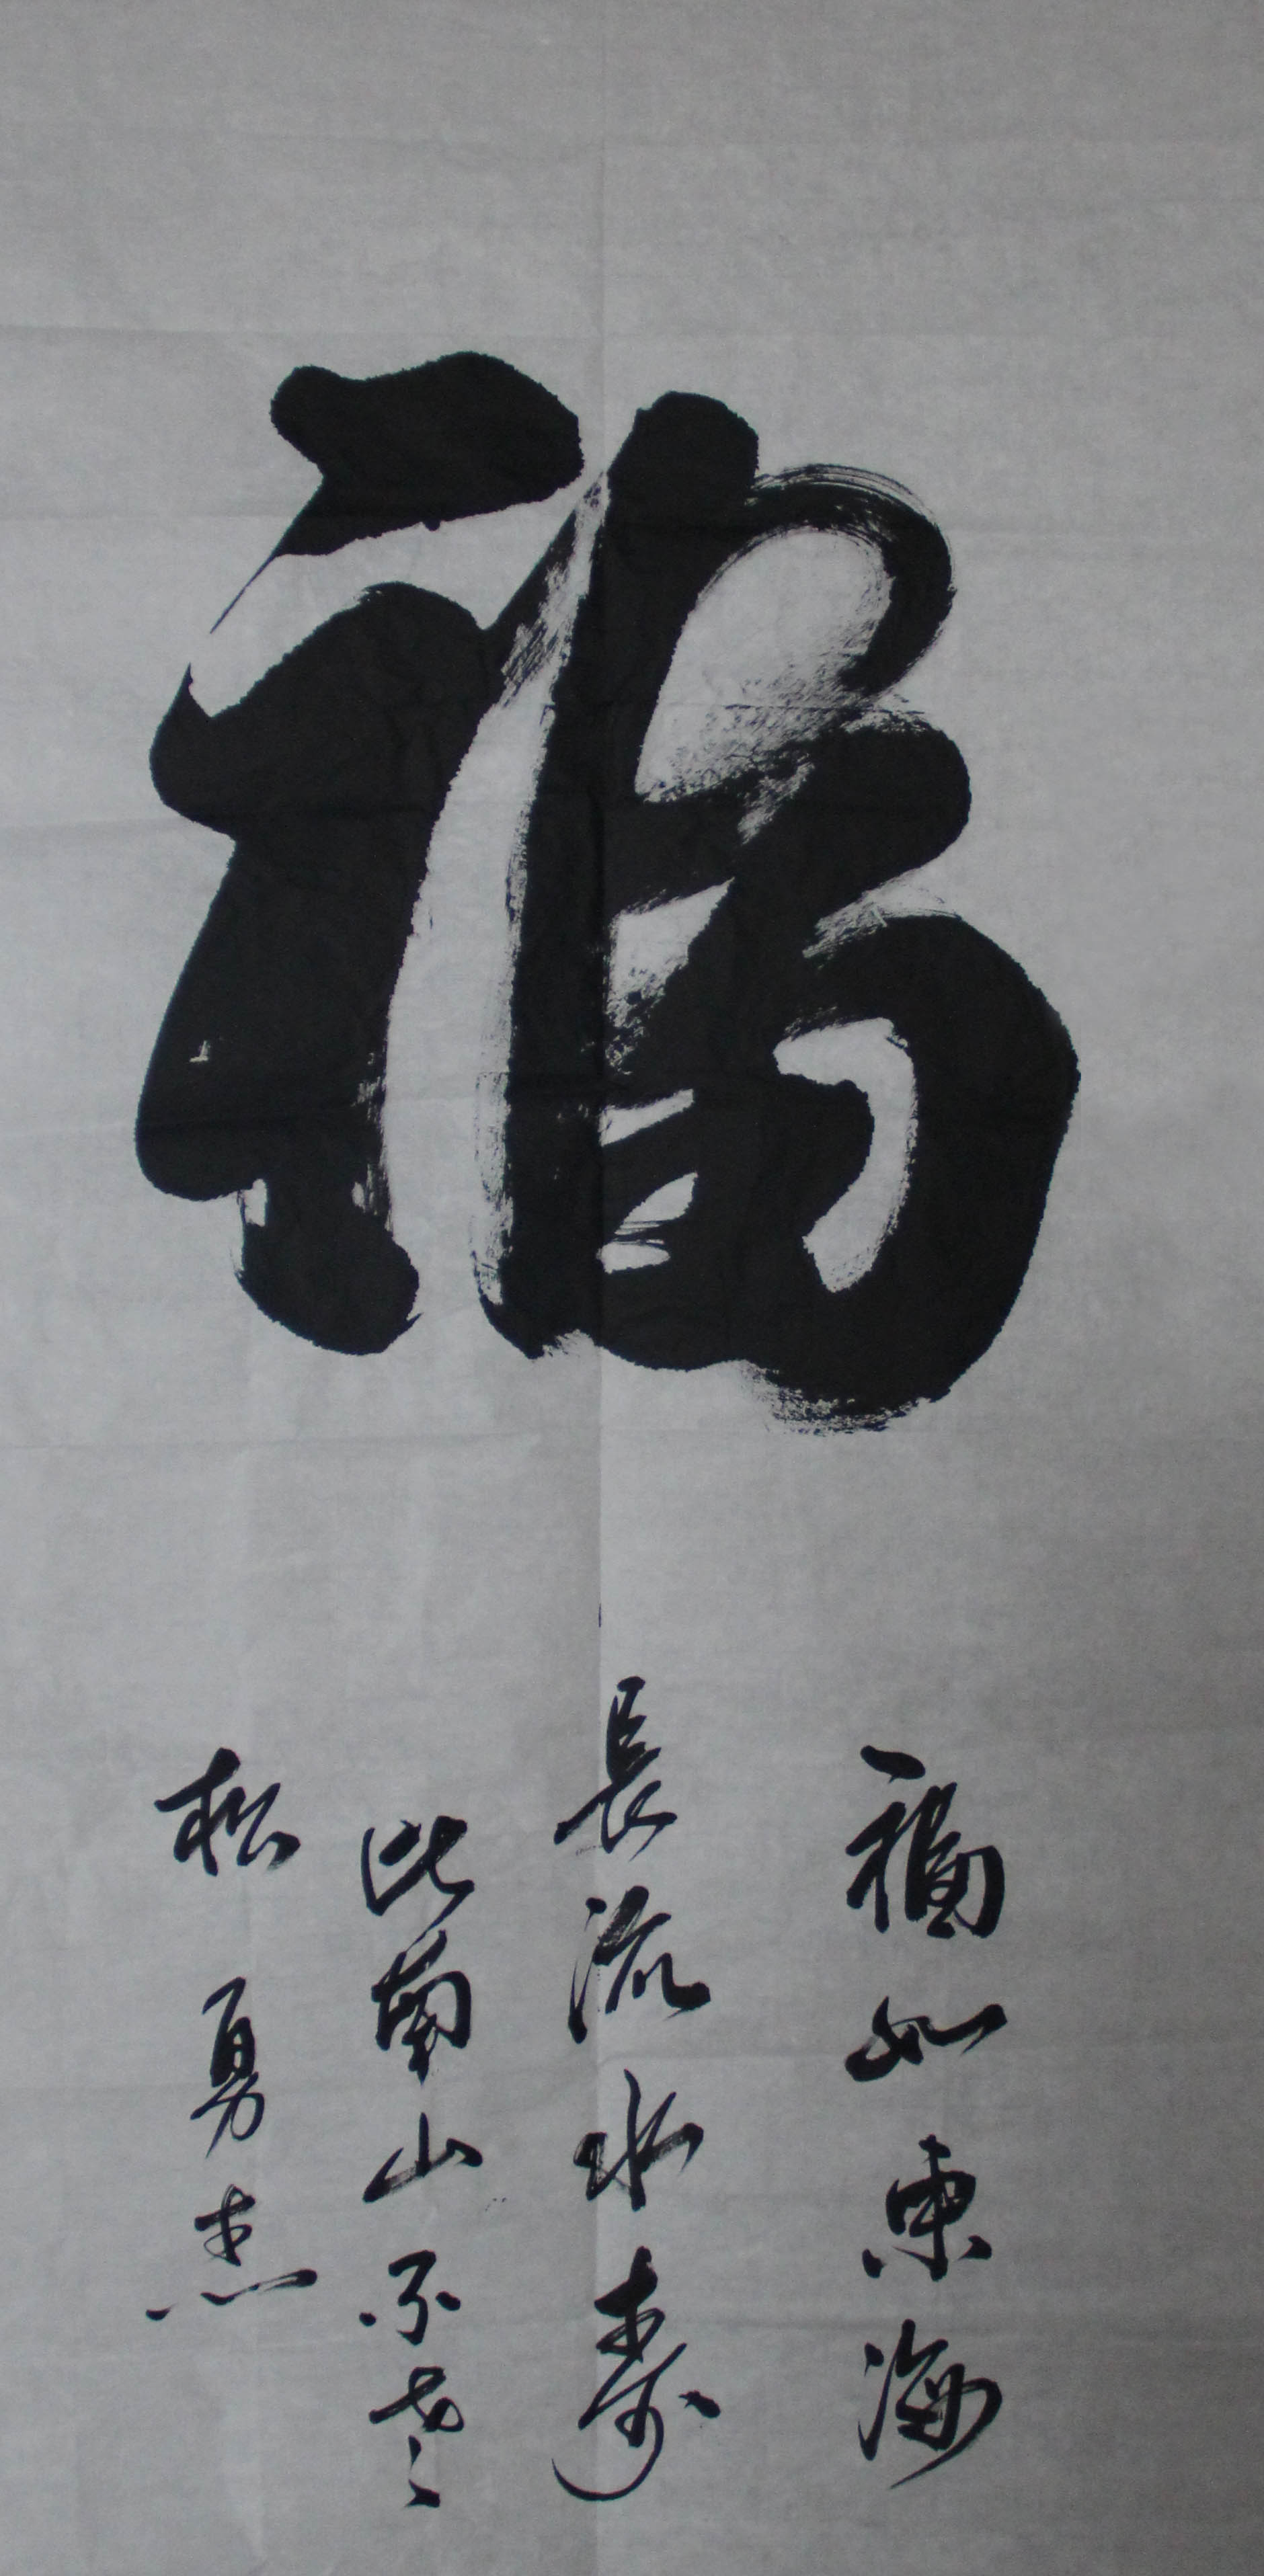 福
福如東海
長流水壽
比南山不老
松 勇杰